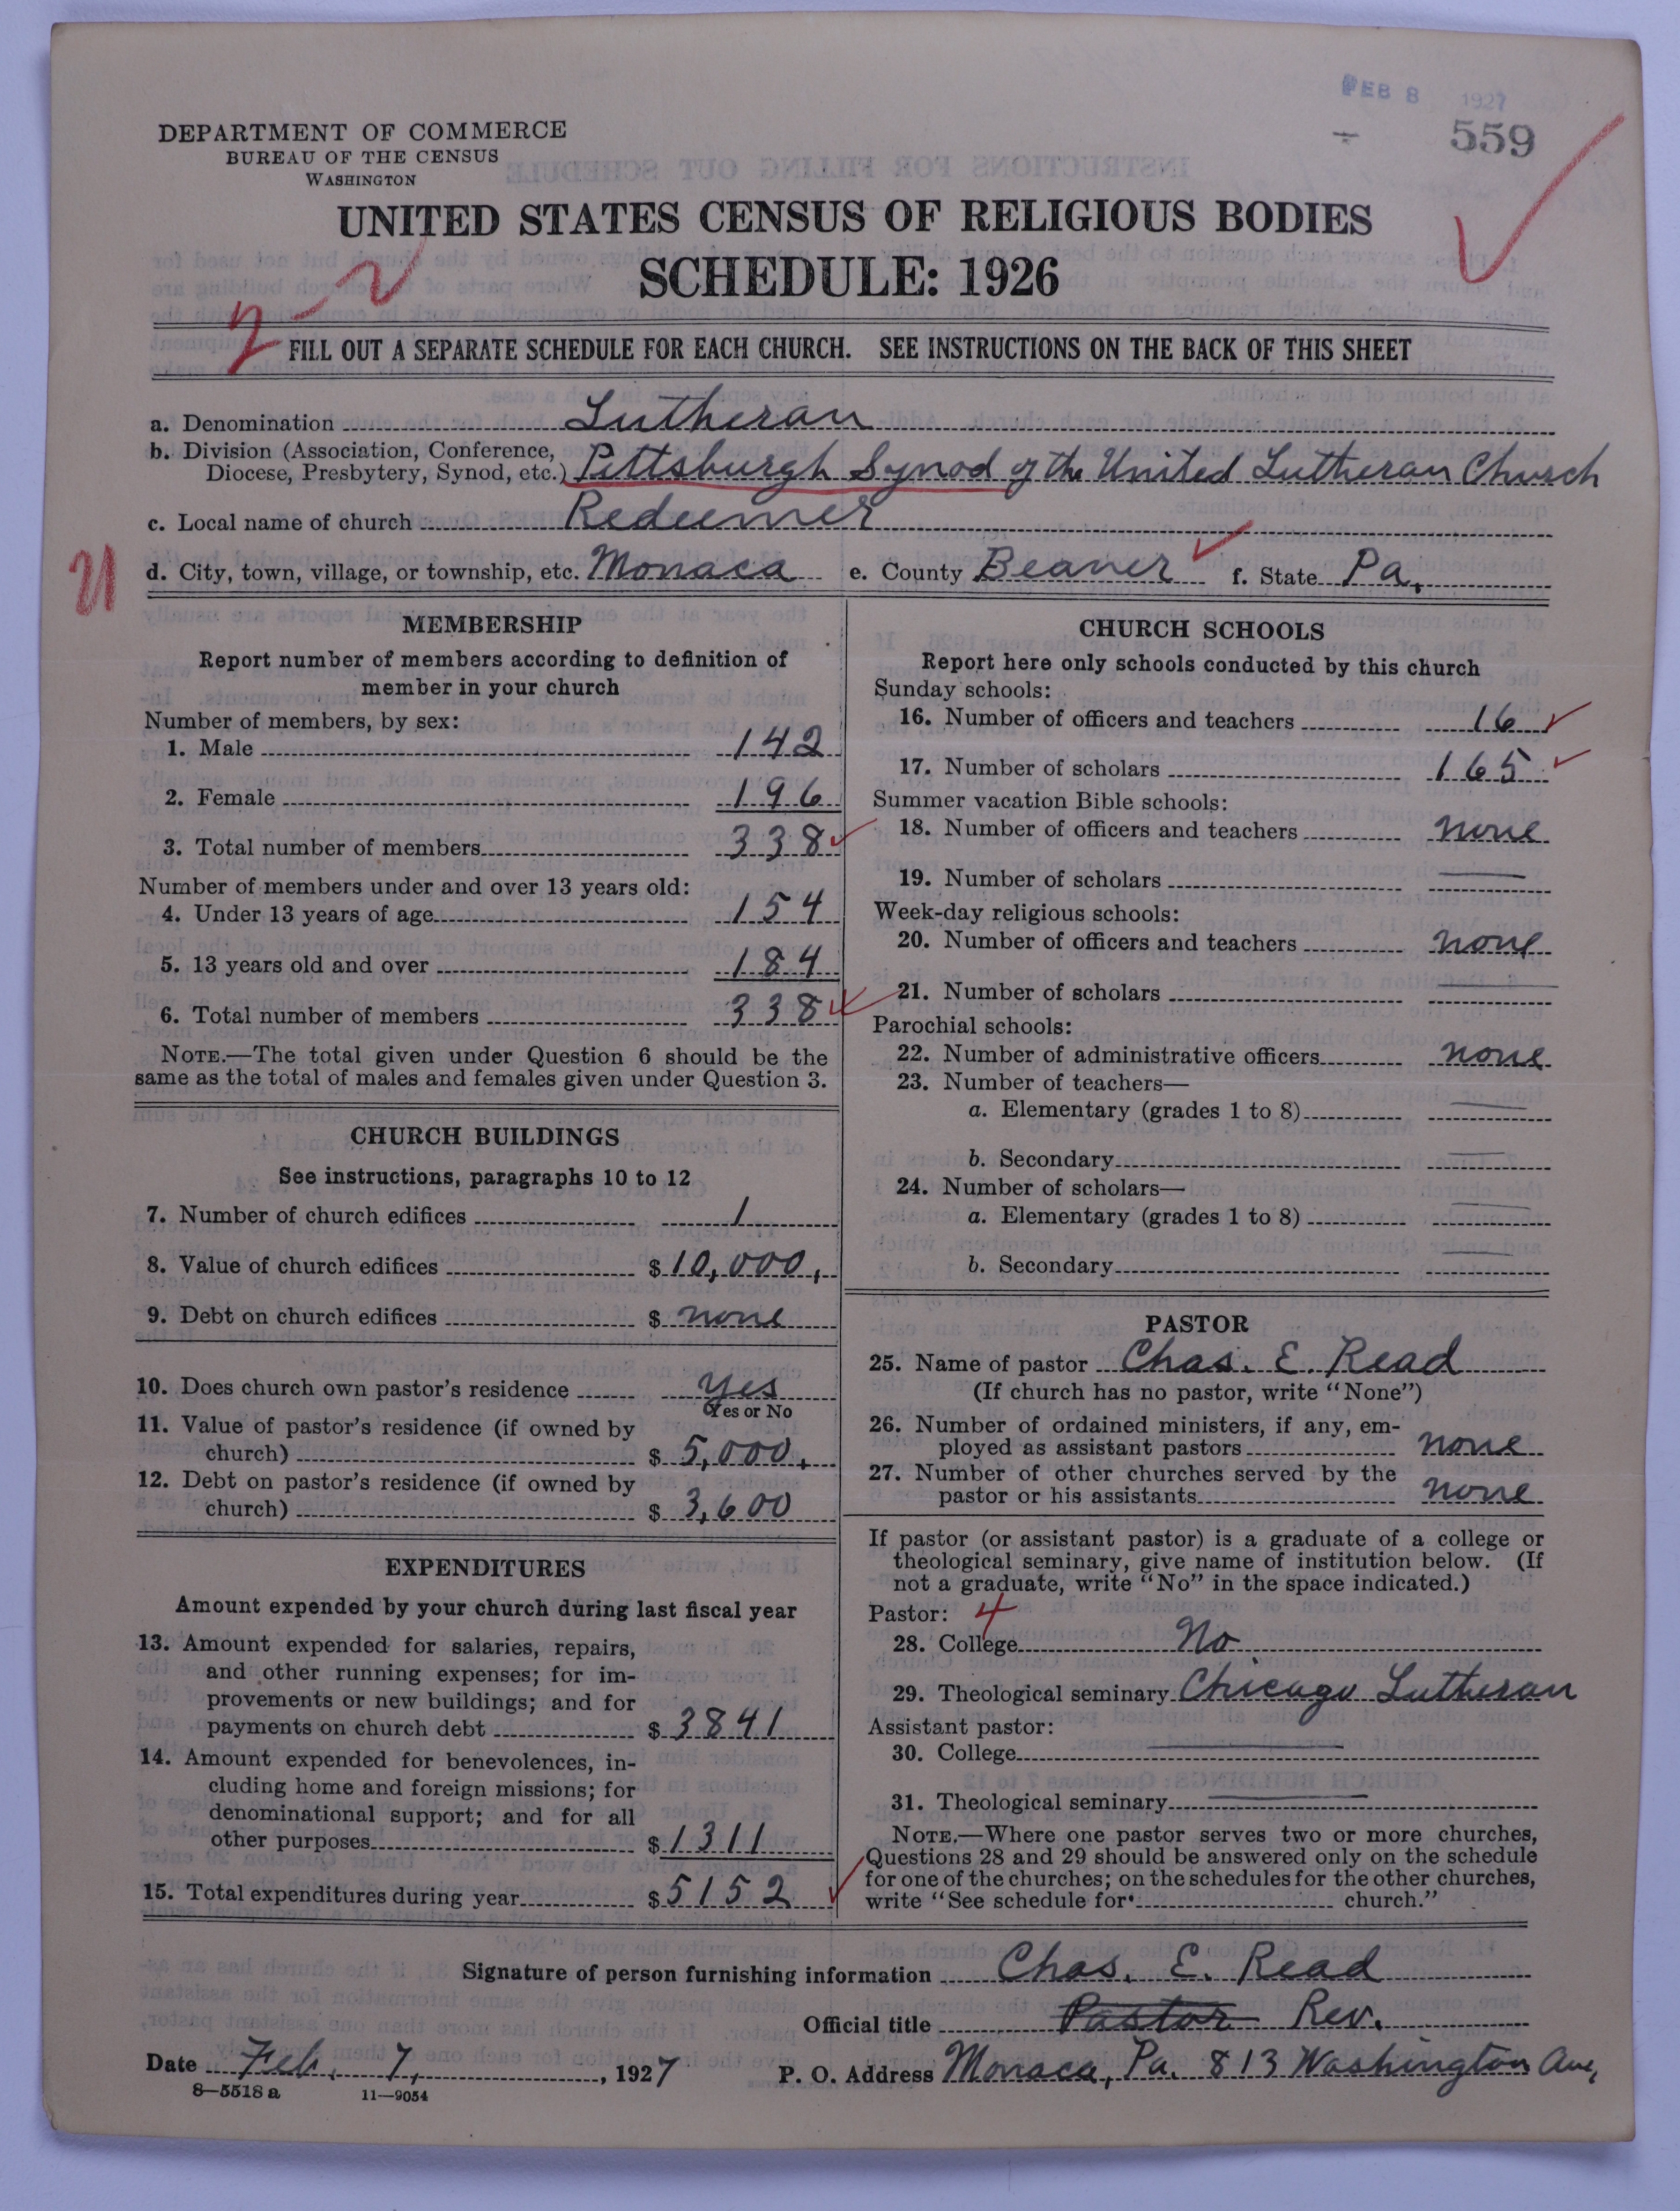 FEB 8 1927
559
DEPARTMENT OF COMMERCE
BUREAU OF THE CENSUS
WASHINGTON
UNITED STATES CENSUS OF RELIGIOUS BODIES
SCHEDULE: 1926
FILL OUT A SEPARATE SCHEDULE FOR EACH CHURCH. SEE INSTRUCTIONS ON THE BACK OF THIS SHEET
a. Denomination Lutheran
b. Division (Association, Conference,
Diocese, Presbytery, Synod, etc.) Pittsburgh Synod of the United Lutheran Church
c. Local name of church Redeemer
21
d. City, town, village, or township, etc. Monaca e. County Beaver f. State Pa.
MEMBERSHIP
Report number of members according to definition of
member in your church
Number of members, by sex:
1. Male 142
2. Female 196
3. Total number of members 338
Number of members under and over 13 years old:
4. Under 13 years of age 154
5. 13 years old and over 184
6. Total number of members 338
NOTE.—The total given under Question 6 should be the
same as the total of males and females given under Question 3.
CHURCH BUILDINGS
See instructions, paragraphs 10 to 12
7. Number of church edifices 1
8. Value of church edifices $10,000.
9. Debt on church edifices $ none
10. Does church own pastor's residence yes
Yes or No
11. Value of pastor's residence (if owned by
church) $ 5,000.
12. Debt on pastor's residence (if owned by
church) $ 3,600
EXPENDITURES
Amount expended by your church during last fiscal year
13. Amount expended for salaries, repairs,
and other running expenses; for im-
provements or new buildings; and for
payments on church debt $ 3841
14. Amount expended for benevolences, in-
cluding home and foreign missions; for
denominational support; and for all
other purposes $1311
15. Total expenditures during year $5152
CHURCH SCHOOLS
Report here only schools conducted by this church
Sunday schools:
16. Number of officers and teachers 16
17. Number of scholars 165
Summer vacation Bible schools:
18. Number of officers and teachers none
19. Number of scholars
Week-day religious schools:
20. Number of officers and teachers none
21. Number of scholars
Parochial schools:
22. Number of administrative officers none
23. Number of teachers—
a. Elementary (grades 1 to 8)
b. Secondary
24. Number of scholars—
a. Elementary (grades 1 to 8)
b. Secondary
PASTOR
25. Name of pastor Chas. E. Read
(If church has no pastor, write "None")
26. Number of ordained ministers, if any, em-
ployed as assistant pastors none
27. Number of other churches served by the
pastor or his assistants none
If pastor (or assistant pastor) is a graduate of a college or
theological seminary, give name of institution below. (If
not a graduate, write "No" in the space indicated.)
Pastor: 4
28. College No
29. Theological seminary Chicago Lutheran
Assistant pastor:
30. College
31. Theological seminary
NOTE.—Where one pastor serves two or more churches,
Questions 28 and 29 should be answered only on the schedule
for one of the churches; on the schedules for the other churches,
write "See schedule for church."
Signature of person furnishing information Chas. E. Read
Official title Pastor Rev.
Date Feb. 7, 1927 P. O. Address Monaca, Pa. 813 Washington Ave,
8—5518 a 11—9054